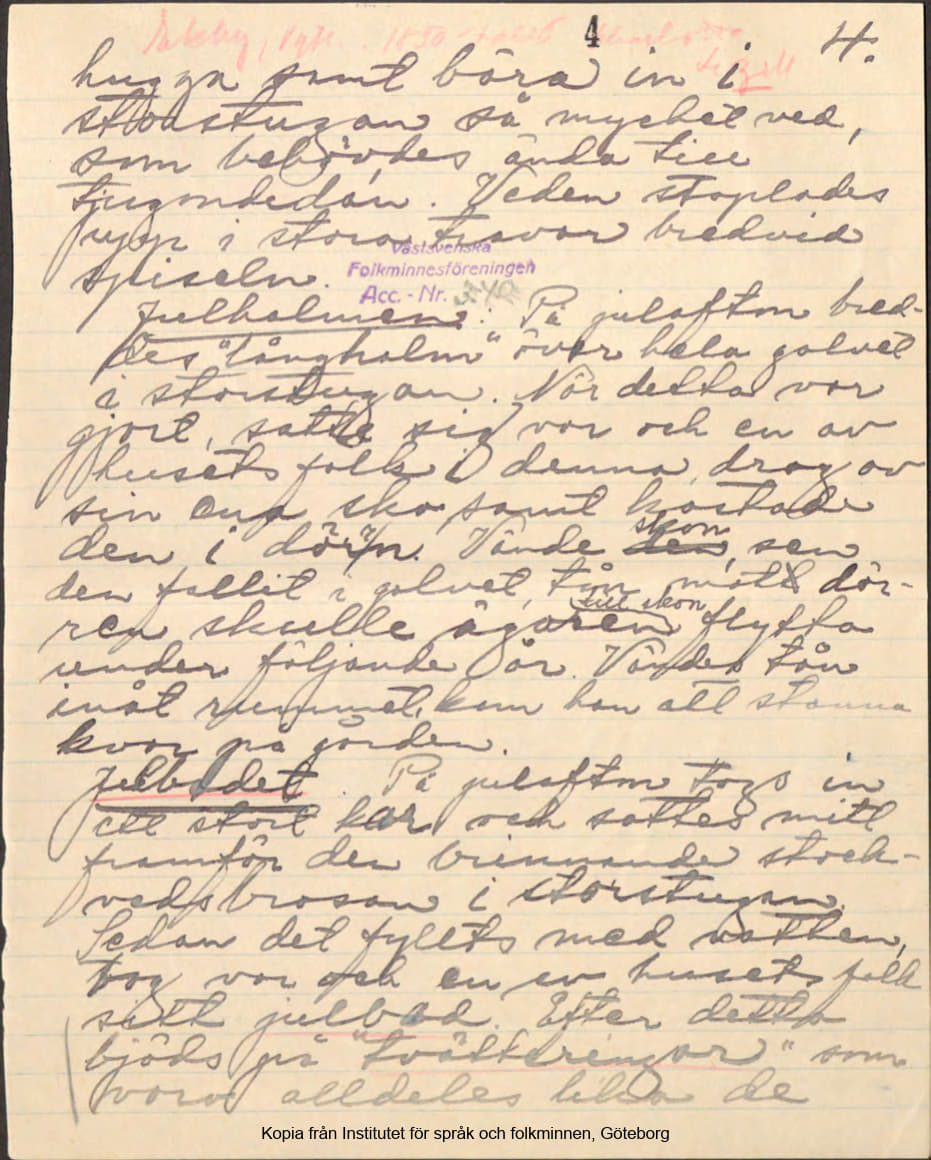 4 4.
hugga samt bära in i
storstugan så mycket ved,
som behövdes ända till
tjugondedan. Veden staplades
upp i stora travar bredvid
spiseln.
Västsvenska
Folkminnesföreningen
Acc. - Nr.
Julhalmen. På julafton bred-
des "långhalm" över hela golvet
i storstugan. När detta var
gjort, satte sig var och en av
husets folk i denna, drog av
sin ena sko samt kastade
den i dörrn. Vände den skon, sen
den fallit i golvet, tån mot dör-
ren skulle ägaren till skon flytta
under följande år. Vändes tån
inåt rummet, kom han att stanna
kvar på gården.
Julbadet. På julafton togs in
ett stort kar och sattes mitt
framför den brinnande stock-
vedsbrasan i storstugan.
Sedan det fyllts med vatten,
tog var och en av husets folk
sitt julbad. Efter detta
bjöds på "tvätteringar" som
voro alldeles lika de
Kopia från Institutet för språk och folkminnen, Göteborg